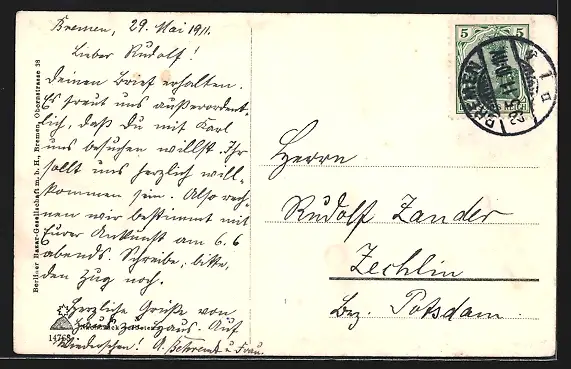 Bremen, 29. Mai 1911.
Lieber Rudolf!
Deinen Brief erhalten.
Es freut uns außerordent-
lich, daß Du mit Karl
uns besuchen willst. Ihr
sollt uns herzlich will-
kommen sein. Also rech-
nen wir bestimmt mit
Eurer Ankunft am 6.6
abends. Schreibe, bitte,
den Zug noch.
Herzliche Grüße von
Haus zu Haus. Auf
Wiedersehen! A. Behrendt u Frau.
Berliner Bazar-Gesellschaft m. b. H., Bremen, Obernstrasse 38
14768
5 5
BREMEN
Herrn
Rudolf Zander
Zechlin
Bez. Potsdam.